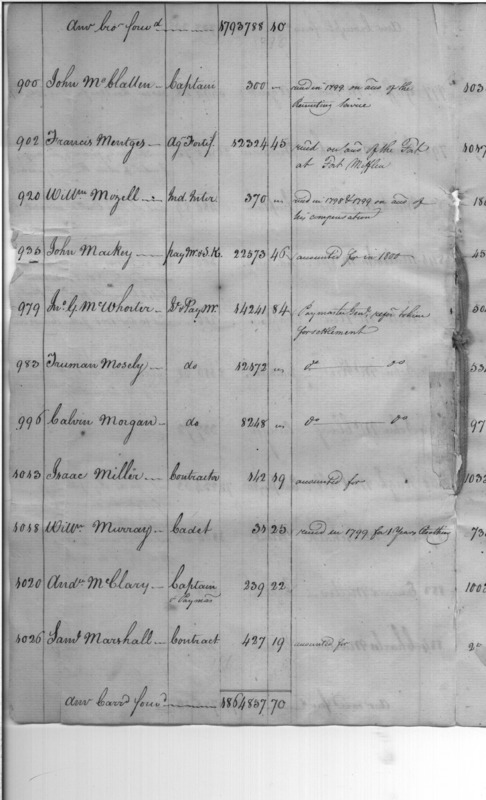 Amt bro: forwd 1793788 10
900 John McClallen Captain 300 " recd in 1799 on acct of the
Recruiting Service
902 Francis Mentges Ag. Fortif. 12324 45 recd on acct of the Fort
at Fort Mifflin
920 Willm Mozell Ind. Inter 370 " recd in 1798 & 1799 on acct of
his compensation
935 John Mackey pay M & S.K. 22573 46 accounted for in 1800
979 Jno G McWhorter Dr PayMr 14241 84 Paymaster Genl,
for settlement
983 Truman Mosely do 12172 " do do
996 Calvin Morgan do 8248 " do do
1013 Isaac Miller Contractor 142 19 accounted for
1018 Willm Murray Cadet 31 25 recd in 1799 for 1 Years Clothing
1020 Andw McClary Captain 239 22
& Paymas
1026 Saml Marshall Contract 427 19 accounted for
Amt Carrd forwd 1864857 70